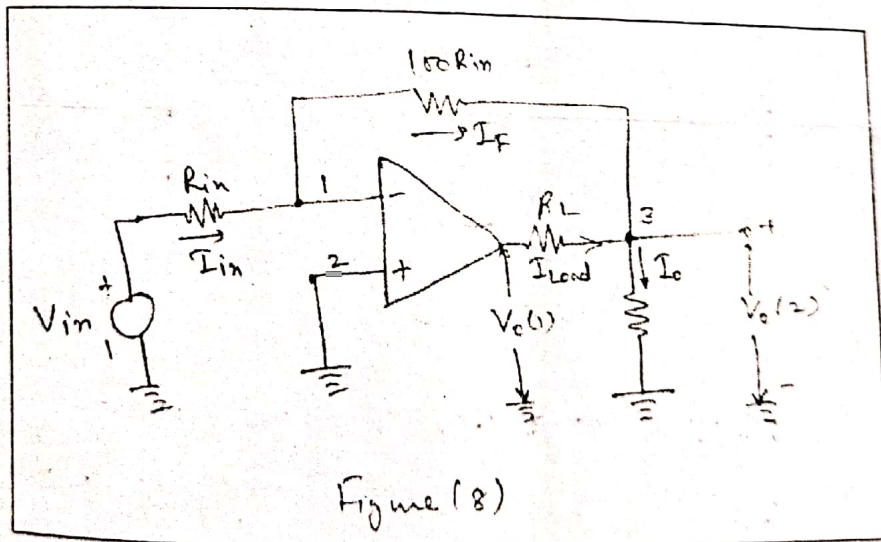 100Rin
→ I_F
Rin
1
-
RL
3
+
Iin
2
+
ILoad
Io
+
Vin
Vo(1)
Vo(2)
-
Figure (8)